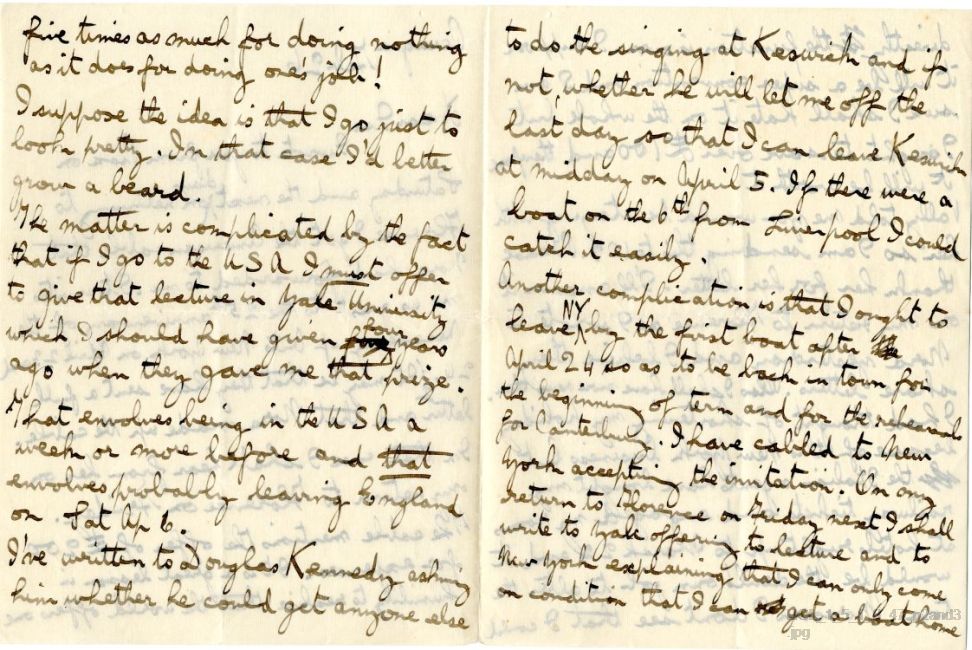 five times as much for doing nothing
as it does for doing one's job!
I suppose the idea is that I go just to
look pretty. In that case I'd better
grow a beard.
The matter is complicated by the fact
that if I go to the USA I must offer
to give that lecture in Yale University
which I should have given four years
ago when they gave me that prize.
That envolves being in the USA a
week or more before and that
envolves probably leaving England
on Sat Ap 6.
I've written to Douglas Kennedy asking
him whether he could get anyone else
to do the singing at Keswick and if
not, whether he will let me off the
last day so that I can leave Keswick
at midday on April 5. If there were a
boat on the 6th from Liverpool I could
catch it easily.
Another complication is that I ought to
leave NY by the first boat after
April 24 so as to be back in town for
the beginning of term and for the rehearsals
for Canterbury. I have cabled to New
York accepting the invitation. On my
return to Florence on Friday next I shall
write to Yale offering to lecture and to
New York explaining that I can only come
on condition that I can get a boat home
.jpg